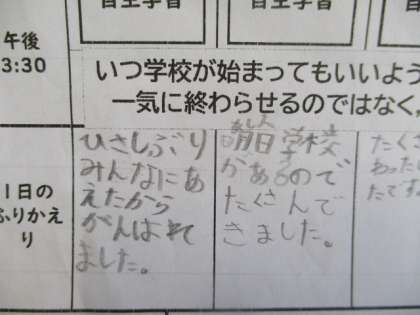 自主学習
自主学習
午後
3:30
いつ学校が始まってもいいよう
一気に終わらせるのではなく,
1日の
ふりかえ
り
ひさしぶり
みんなにあ
えたから
がんばれて
ました。
明日学校
があるので
たくさんで
きました。
たくさ